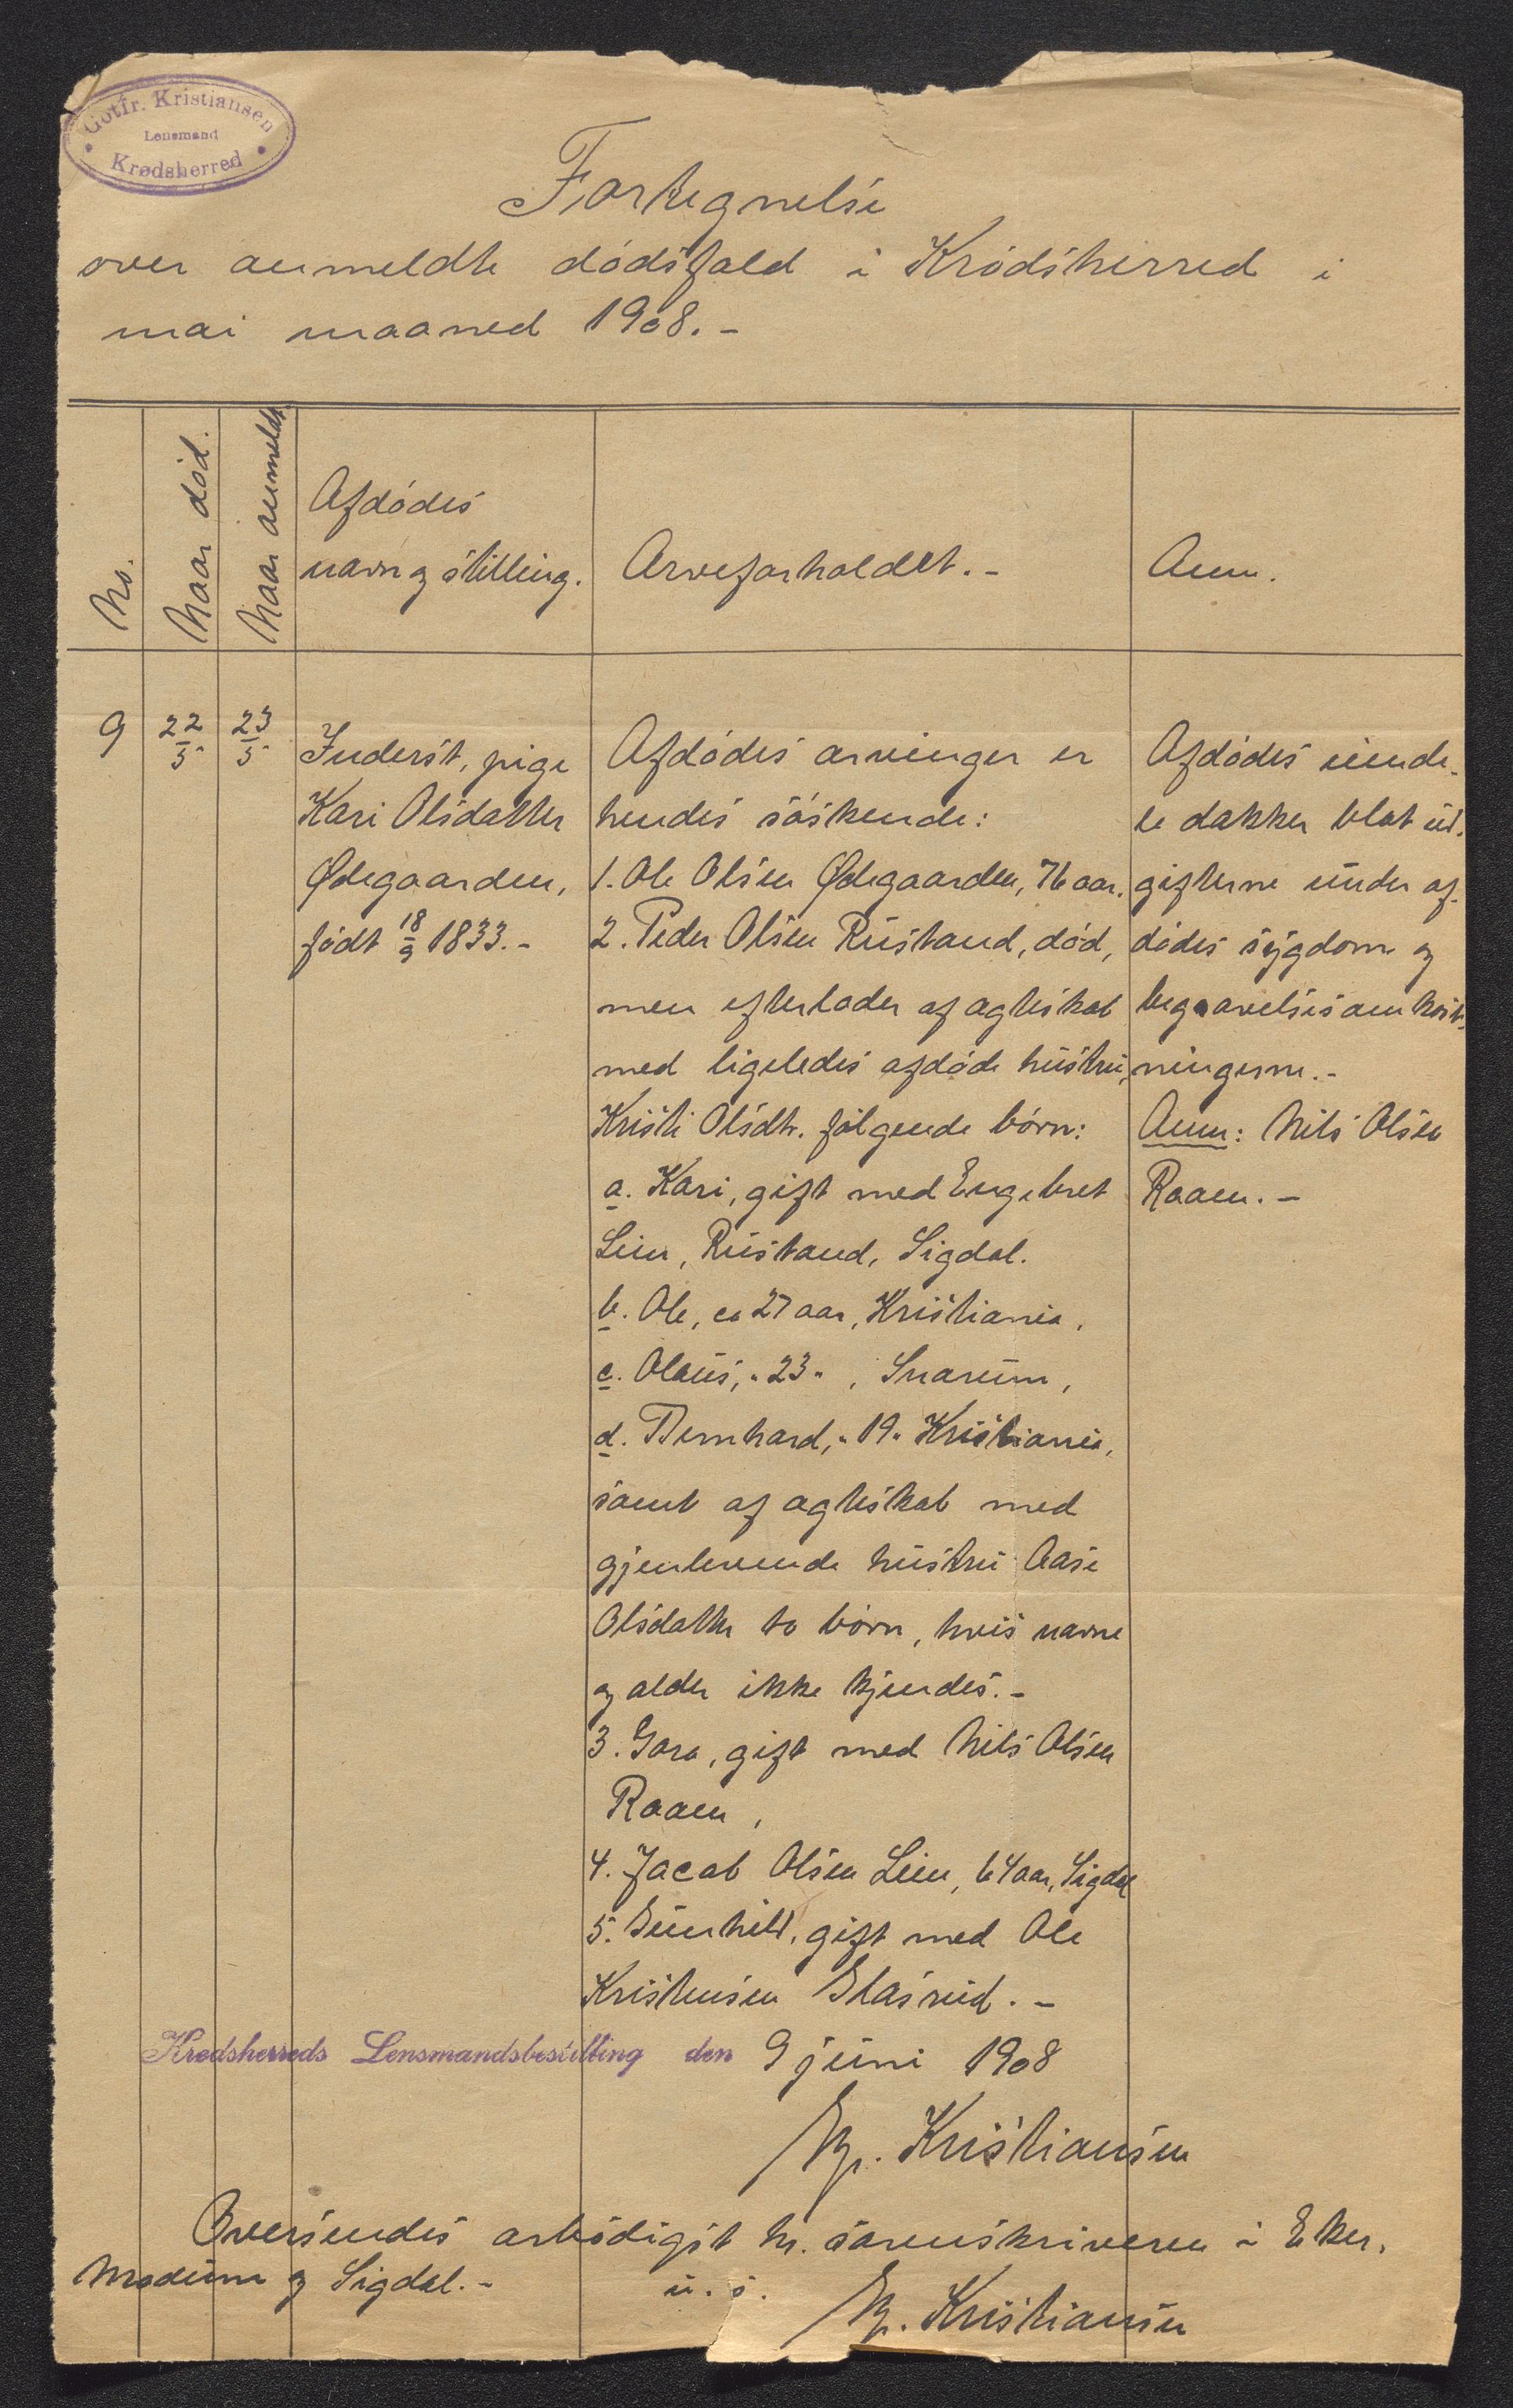 Gotfr. Kristiansen
Lensmand
Krødsherred
Fortegnelse
over anmeldte dødsfald i Krødsherred i
mai maaned 1908.-
No.
Naar død.
Naar anmeldt.
Afdødes
navn og stilling.
Arveforholdet.-
Anm.
9
22/5
23/5
Inderst, pige
Kari Olsdatter
Ødegaarden,
født 18/3 1833.-
Afdødes arvinger er
hendes søskende:
1. Ole Olsen Ødegaarden, 76 aar.
2. Peder Olsen Rustand, død,
men efterlader af ægteskab
med ligeledes afdøde hustru,
Kristi Olsdtr. følgende børn:
a. Kari, gift med Engebret
Lien, Rustand, Sigdal.
b. Ole, ca 27 aar, Kristiania,
c. Olaus, " 23 " , Snarum,
d. Bernhard, " 19 " Kristiania,
samt af ægteskab med
gjenlevende hustru Aase
Olsdatter to børn, hvis navne
og alder ikke kjendes.-
3. Goro, gift med Nils Olsen
Raaen,
4. Jacob Olsen Lien, 64 aar, Sigdal
5. Gunhild, gift med Ole
Kristensen Glasrud.-
Afdødes eiende-
le dækker blot ud-
gifterne under af-
dødes sygdom og
begravelsesomkost-
ningerne.-
Anm: Nils Olsen
Raaen.-
Krødsherreds Lensmandsbestilling den 9 juni 1908
Kristiansen
Oversendes ærbødigst hr. sorenskriveren i Eker,
Modum og Sigdal.-
u. s.
Kristiansen